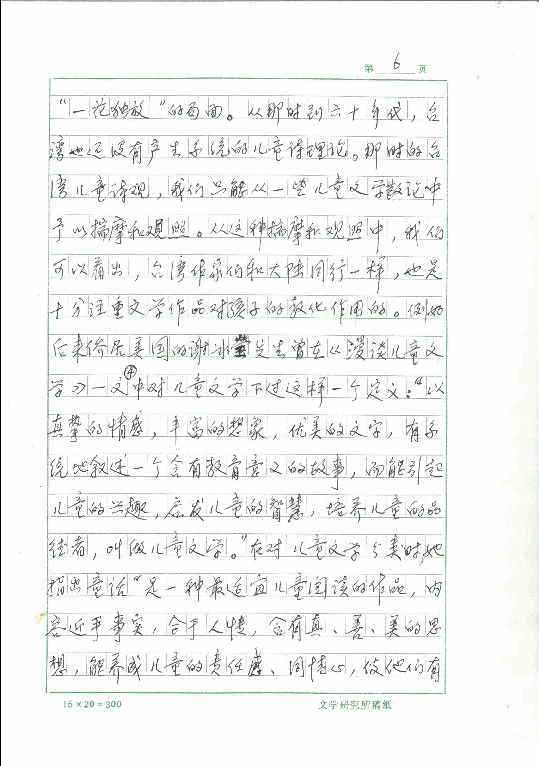 第 6 页
“一花独放”的局面。从那时到六十年代，台
湾也还没有产生系统的儿童诗理论。那时的台
湾儿童诗观，我们只能从一些儿童文学散论中
予以揣摩和观照。从这种揣摩和观照中，我们
可以看出，台湾作家们和大陆同行一样，也是
十分注重文学作品对孩子的教化作用的。例如
后来侨居美国的谢冰莹先生曾在《漫谈儿童文
学》一文④中对儿童文学下过这样一个定义：“以
真挚的情感，丰富的想象，优美的文字，有系
统地叙述一个含有教育意义的故事，而能引起
儿童的兴趣，启发儿童的智慧，培养儿童的品
德者，叫做儿童文学。”在对儿童文学分类时，她
指出童话“是一种最适宜儿童阅读的作品，内
容近乎事实，合于人情，含有真、善、美的思
想，能养成儿童的责任感、同情心，使他们有
16×20=300
文学研究所稿纸